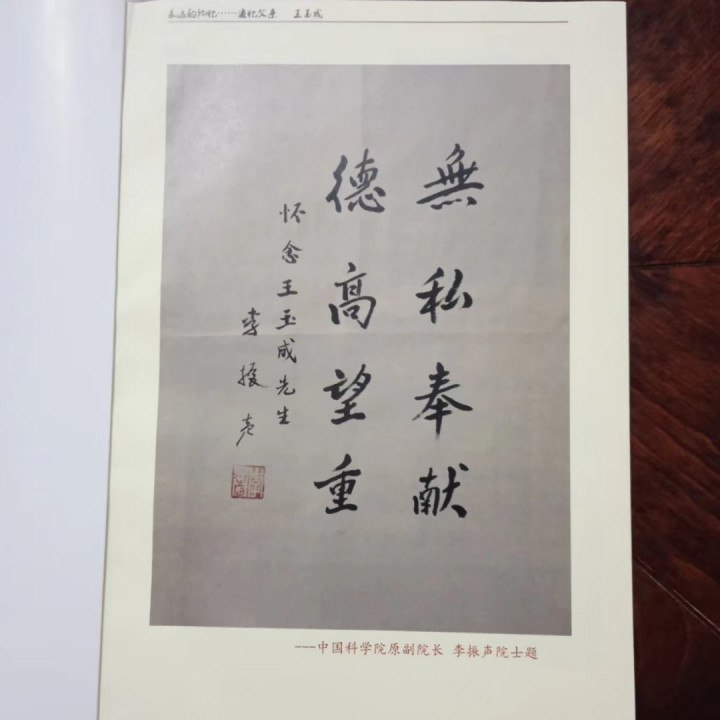 永远的记忆……追忆父亲 王玉成
無私奉献
德高望重
怀念王玉成先生
李振声
---中国科学院原副院长 李振声院士题